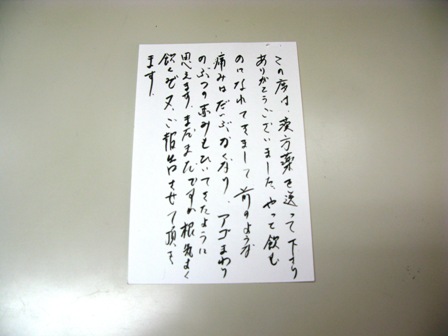 この度は、漢方薬を送って下さり
ありがとうございました。やっと飲む
のになれてきまして前のような
痛みはだいぶなくなり、アゴまわり
のぶつの赤みもひいてきたように
思えます。まだまだですが根気よく
飲んで又、ご報告させて頂き
ます。